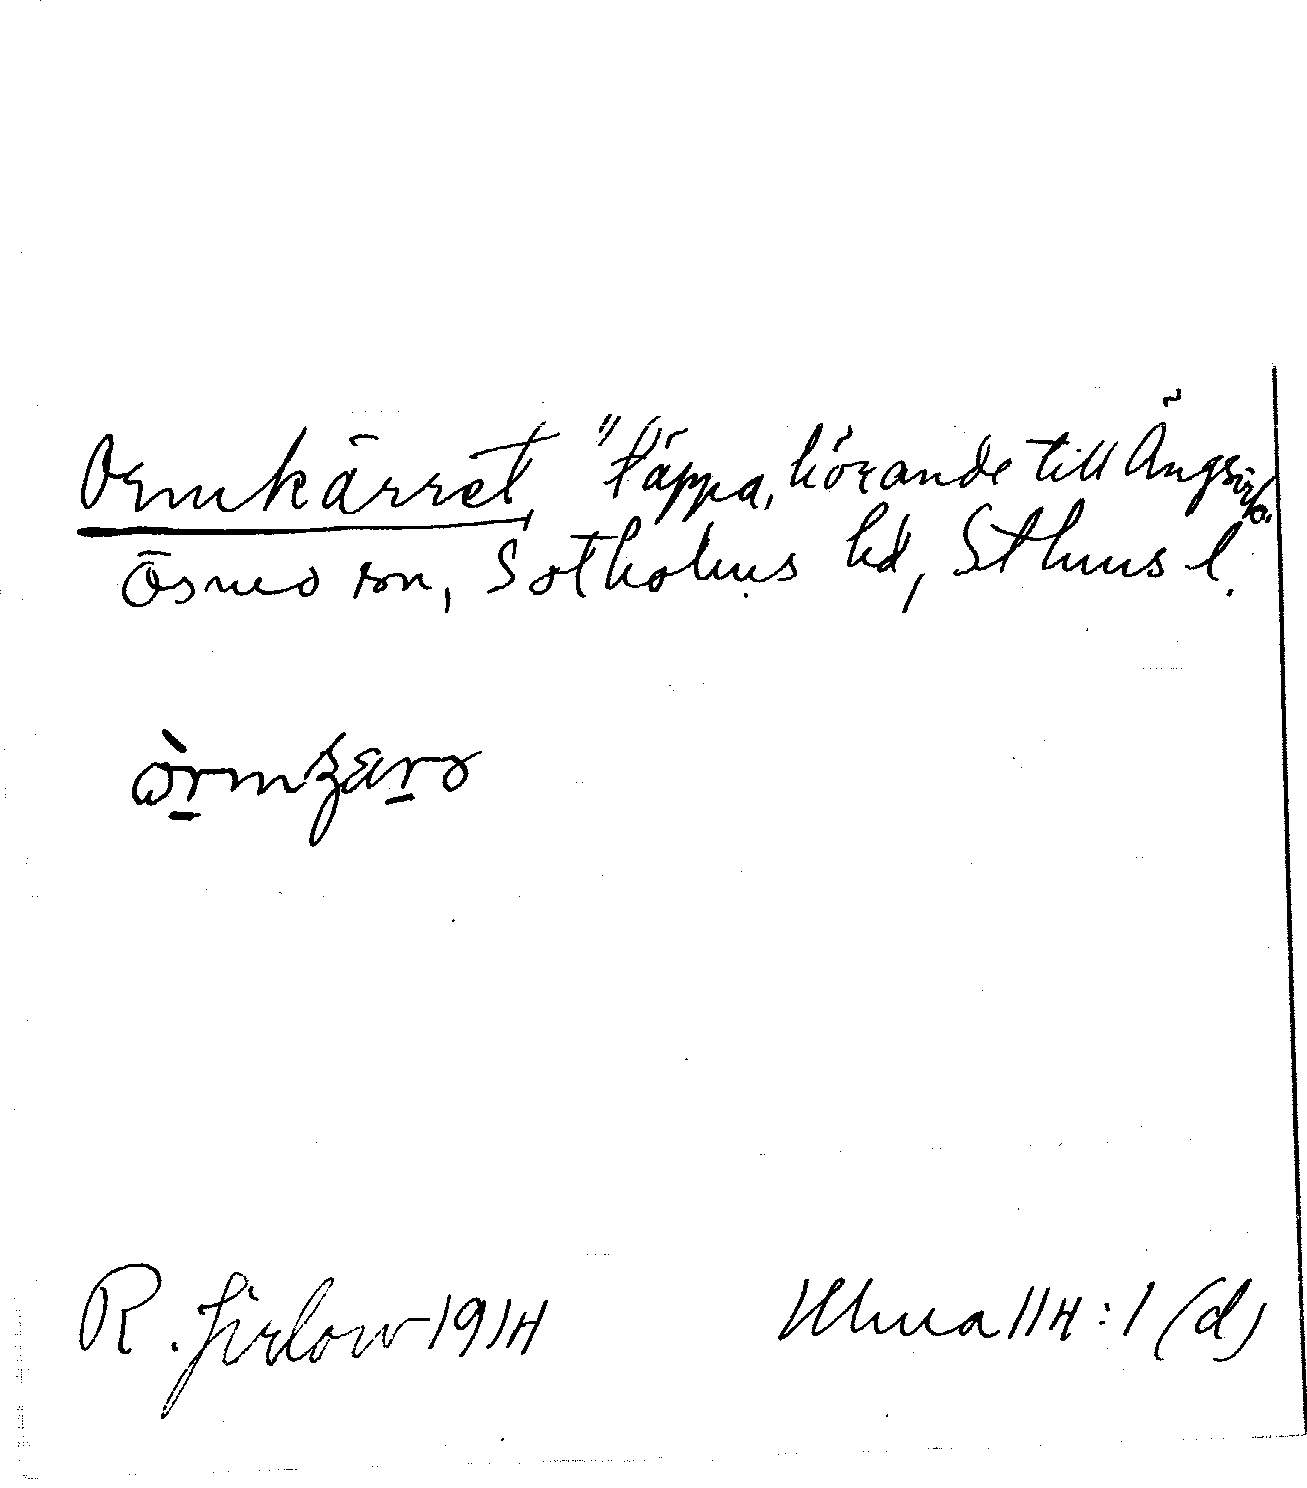 Ormkärret, "täppa, hörande till Ängsir/a.
Ösmo sn, Sotholms hd, Sthms l.
R. Jirlow 1914
Ulma 114:1 (d)